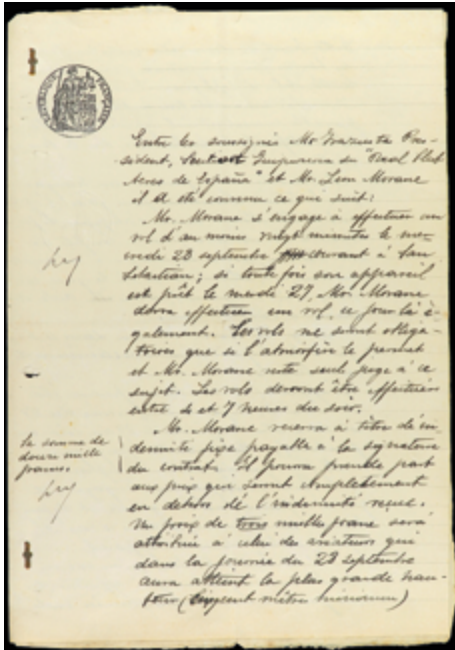 REPUBLIQUE FRANÇAISE
Entre les soussignés Mr. Pré-
sident, du "Real Club
Aereo de España" et Mr. Léon Morane
il a été convenu ce que suit:
Mr. Morane s'engage à effectuer un
vol d'au moins vingt minutes le mer-
credi 28 septembre courant à San
Sebastian; si toute fois son appareil
est prêt le mardi 27, Mr. Morane
devra effectuer un vol ce jour là é-
galement. Les vols ne seront obliga-
toires que si l'atmosfère le permet
et Mr. Morane reste seul juge à ce
sujet. Les vols devront être effectués
entre 4 et 7 heures du soir.
Mr. Morane recevra à titre d'in-
demnité fixe payable à la signature
du contrat. Il pourra prendre part
aux prix que seront complètement
en dehors de l'indemnité reçue.
Un prix de trois mille francs sera
attribué à celui des aviateurs qui
dans la journée du 28 septembre
aura atteint la plus grande hau-
teur (cinq cent mètres minimum)
la somme de
douze mille
francs.